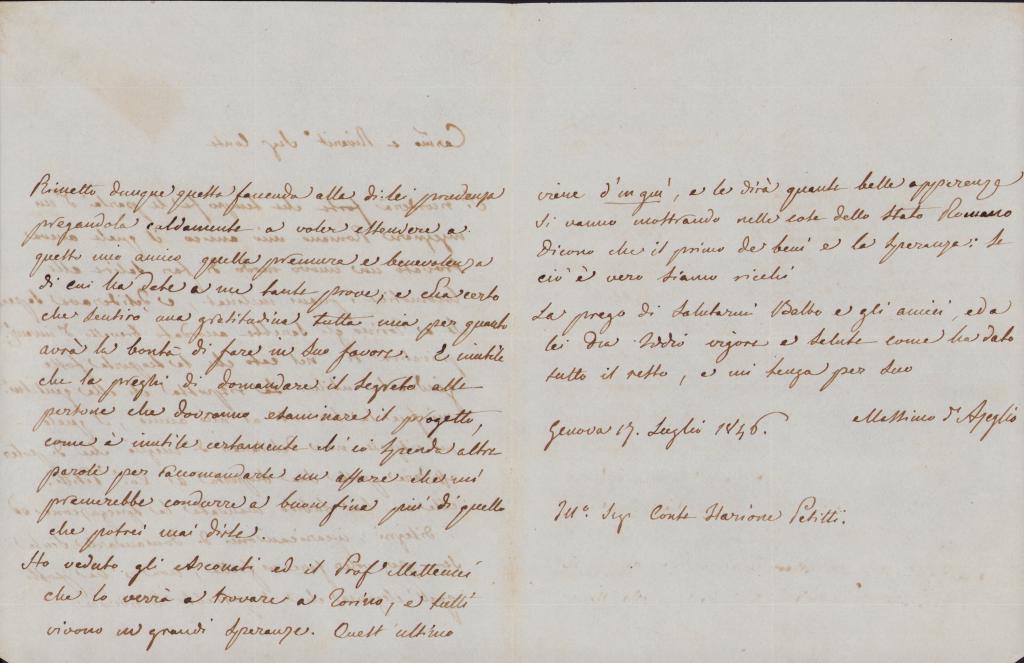 Rimetto dunque questa facenda alla di lei prudenza
pregandola caldamente a voler estendere a
questo mio amico quella premura e benevolenza
di cui ha date a me tante prove, e Sia certo
che sentirò una gratitudine tutta mia per quanto
avrà la bontà di fare in suo favore. È inutile
che la preghi di domandare il segreto alle
persone che dovranno esaminare il progetto,
come è inutile certamente ch'io spenda altre
parole per raccomandarle un affare che mi
premerebbe condurre a buon fine più di quello
che potrei mai dirle.
Ho veduto gli Arconati ed il Prof Matteucci
che lo verrà a trovare a Torino, e tutti
vivono in grandi speranze. Quest'ultimo
viene d'in giù, e le dirà quante belle apparenze
si vanno mostrando nelle cose dello Stato Romano
Dicono che il primo de beni è la speranza: se
ciò è vero siamo ricchi
La prego di salutarmi Balbo e gli amici, ed a
lei Dia Iddio vigore e salute come ha dato
tutto il resto, e mi tenga per suo
Genova 17. Luglio 1846. Massimo d'Azeglio
Ill.º Sig Conte Ilarione Petitti.
Car.mo e Riverit.º Sig Conte